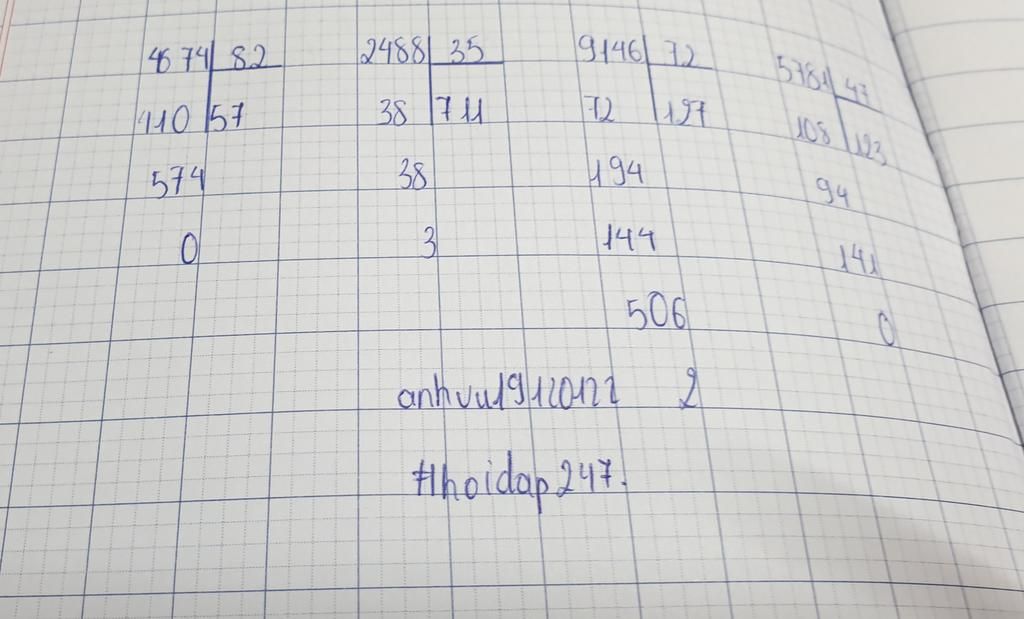 4674 82 2488 35 9146 72 5781 47
410 57 38 711 72 127 108 123
574 38 194 94
0 3 144 141
506 0
2
#hoidap247.